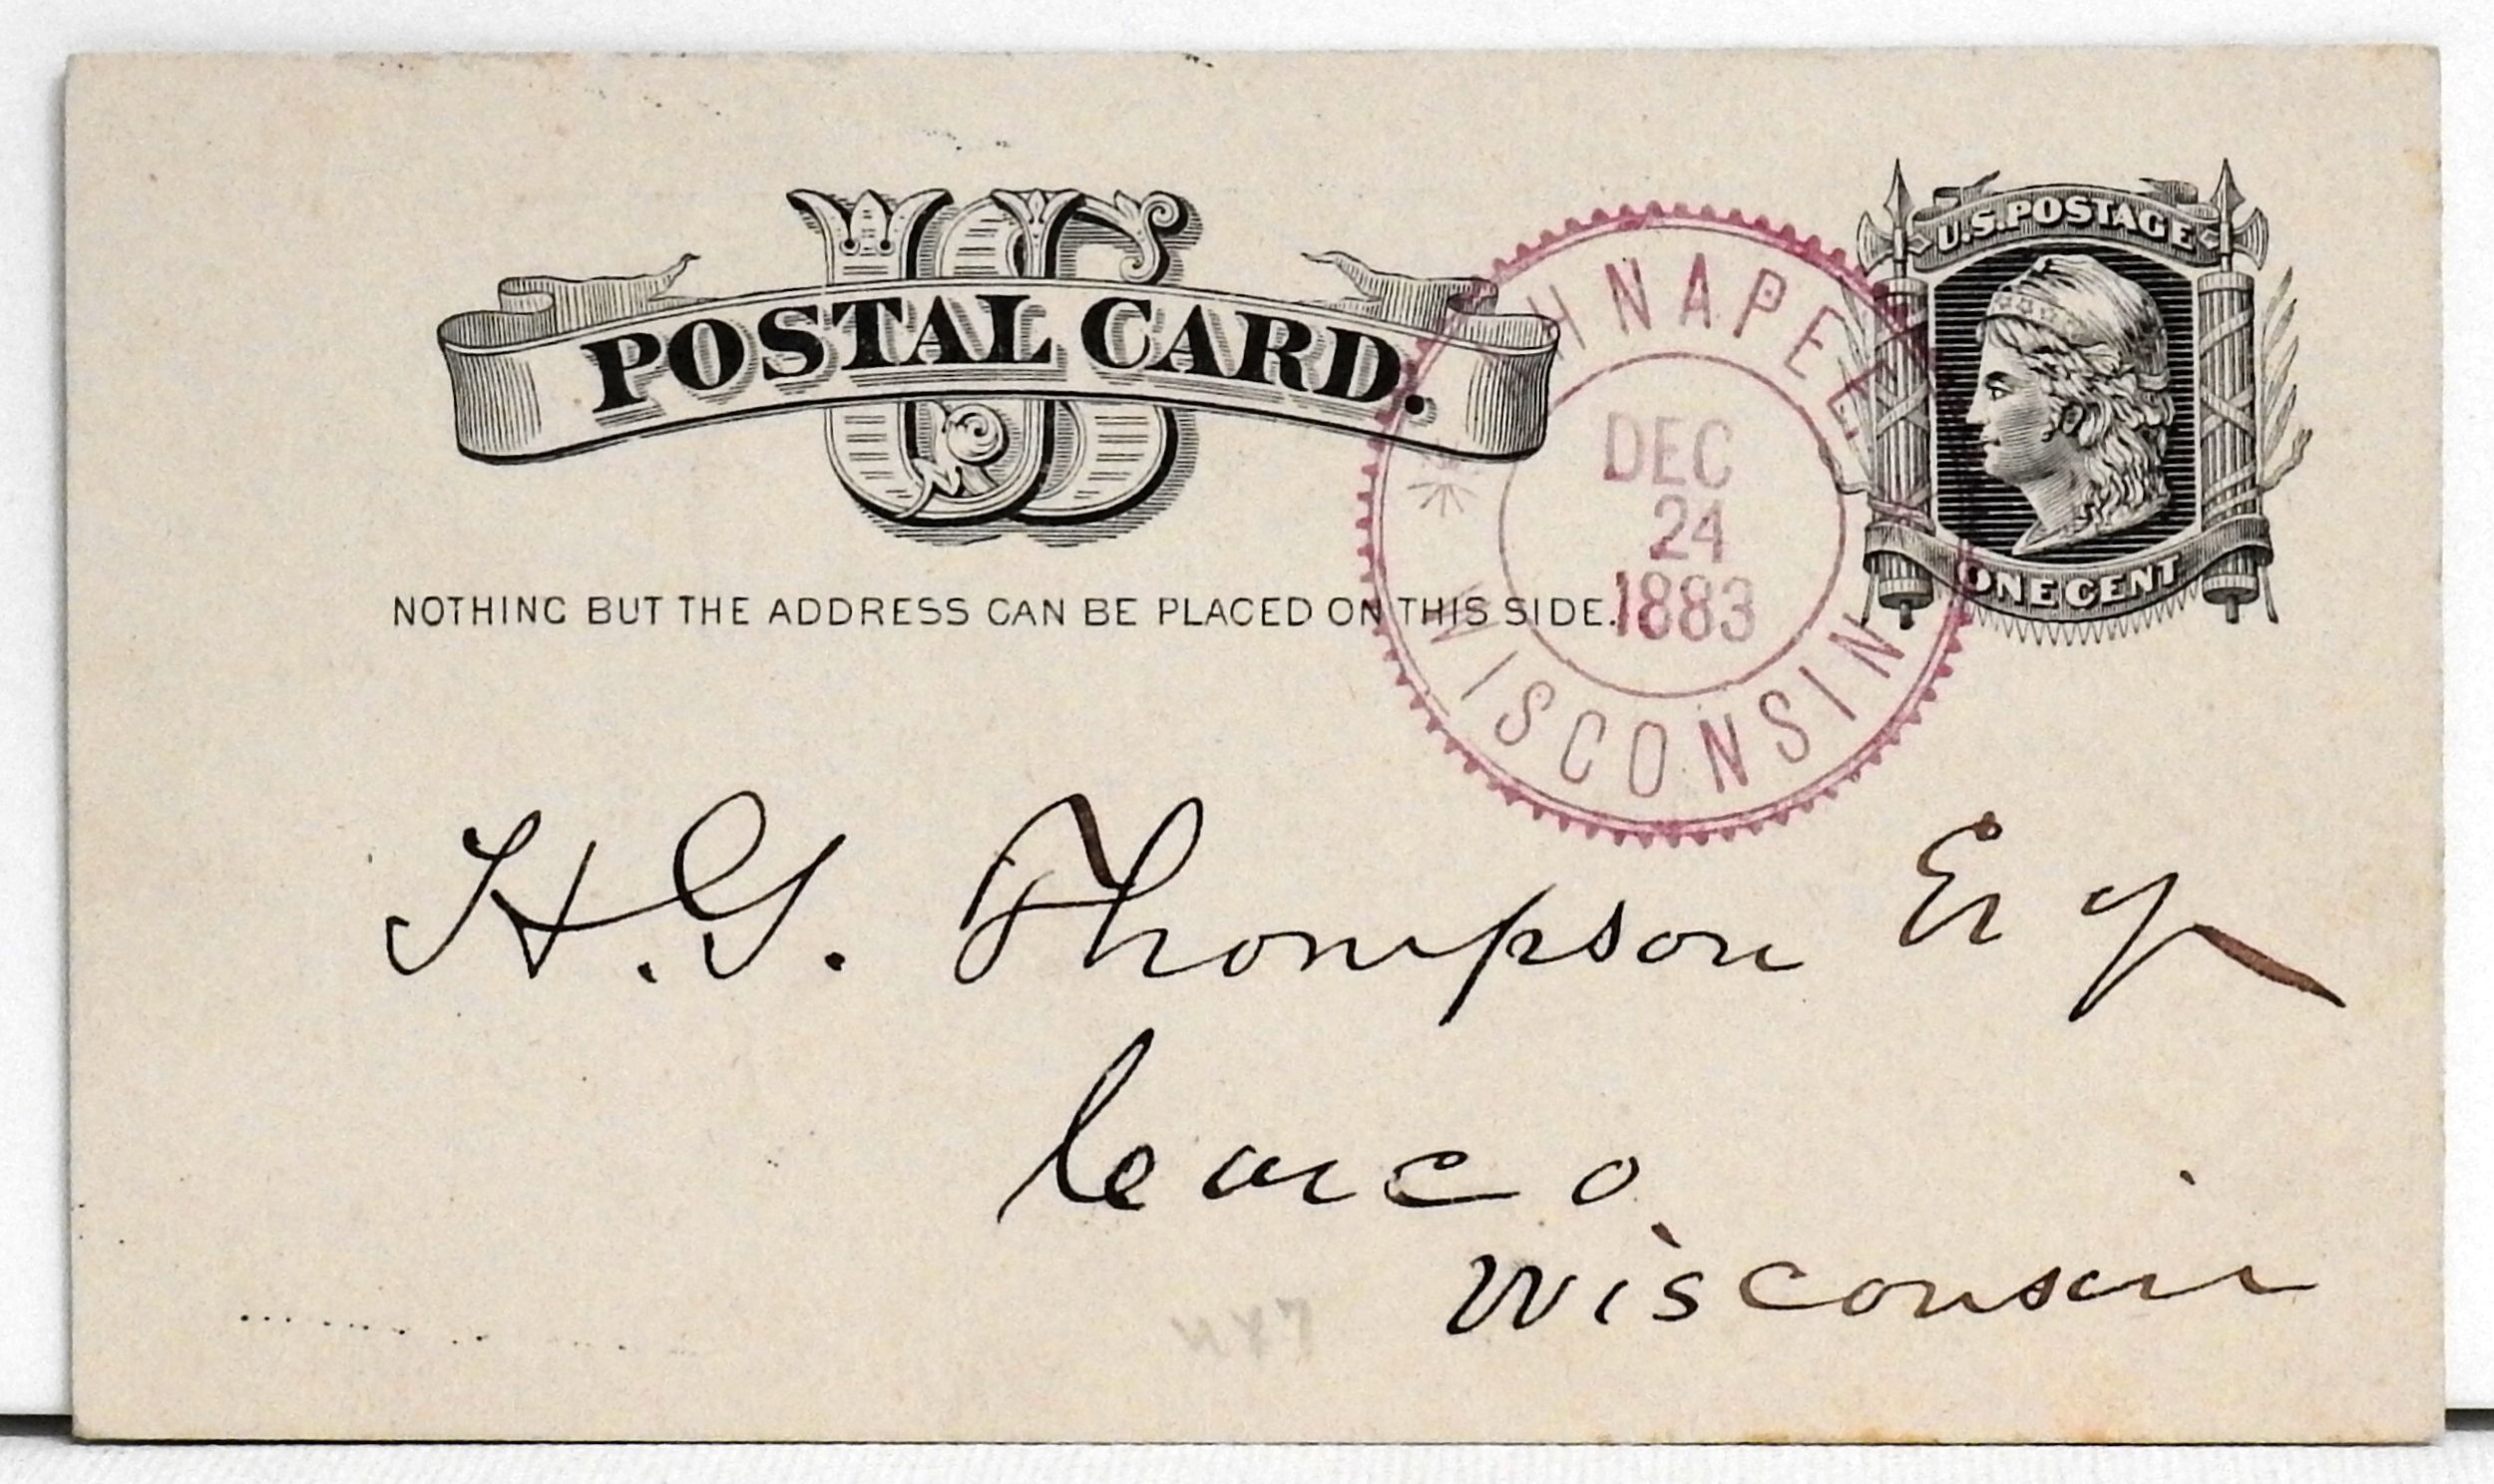 US
POSTAL CARD.
U.S. POSTAGE
ONE CENT
NOTHING BUT THE ADDRESS CAN BE PLACED ON THIS SIDE.
AHNAPEE
DEC
24
1883
WISCONSIN
H. G. Thompson Esq
Casco
Wisconsin